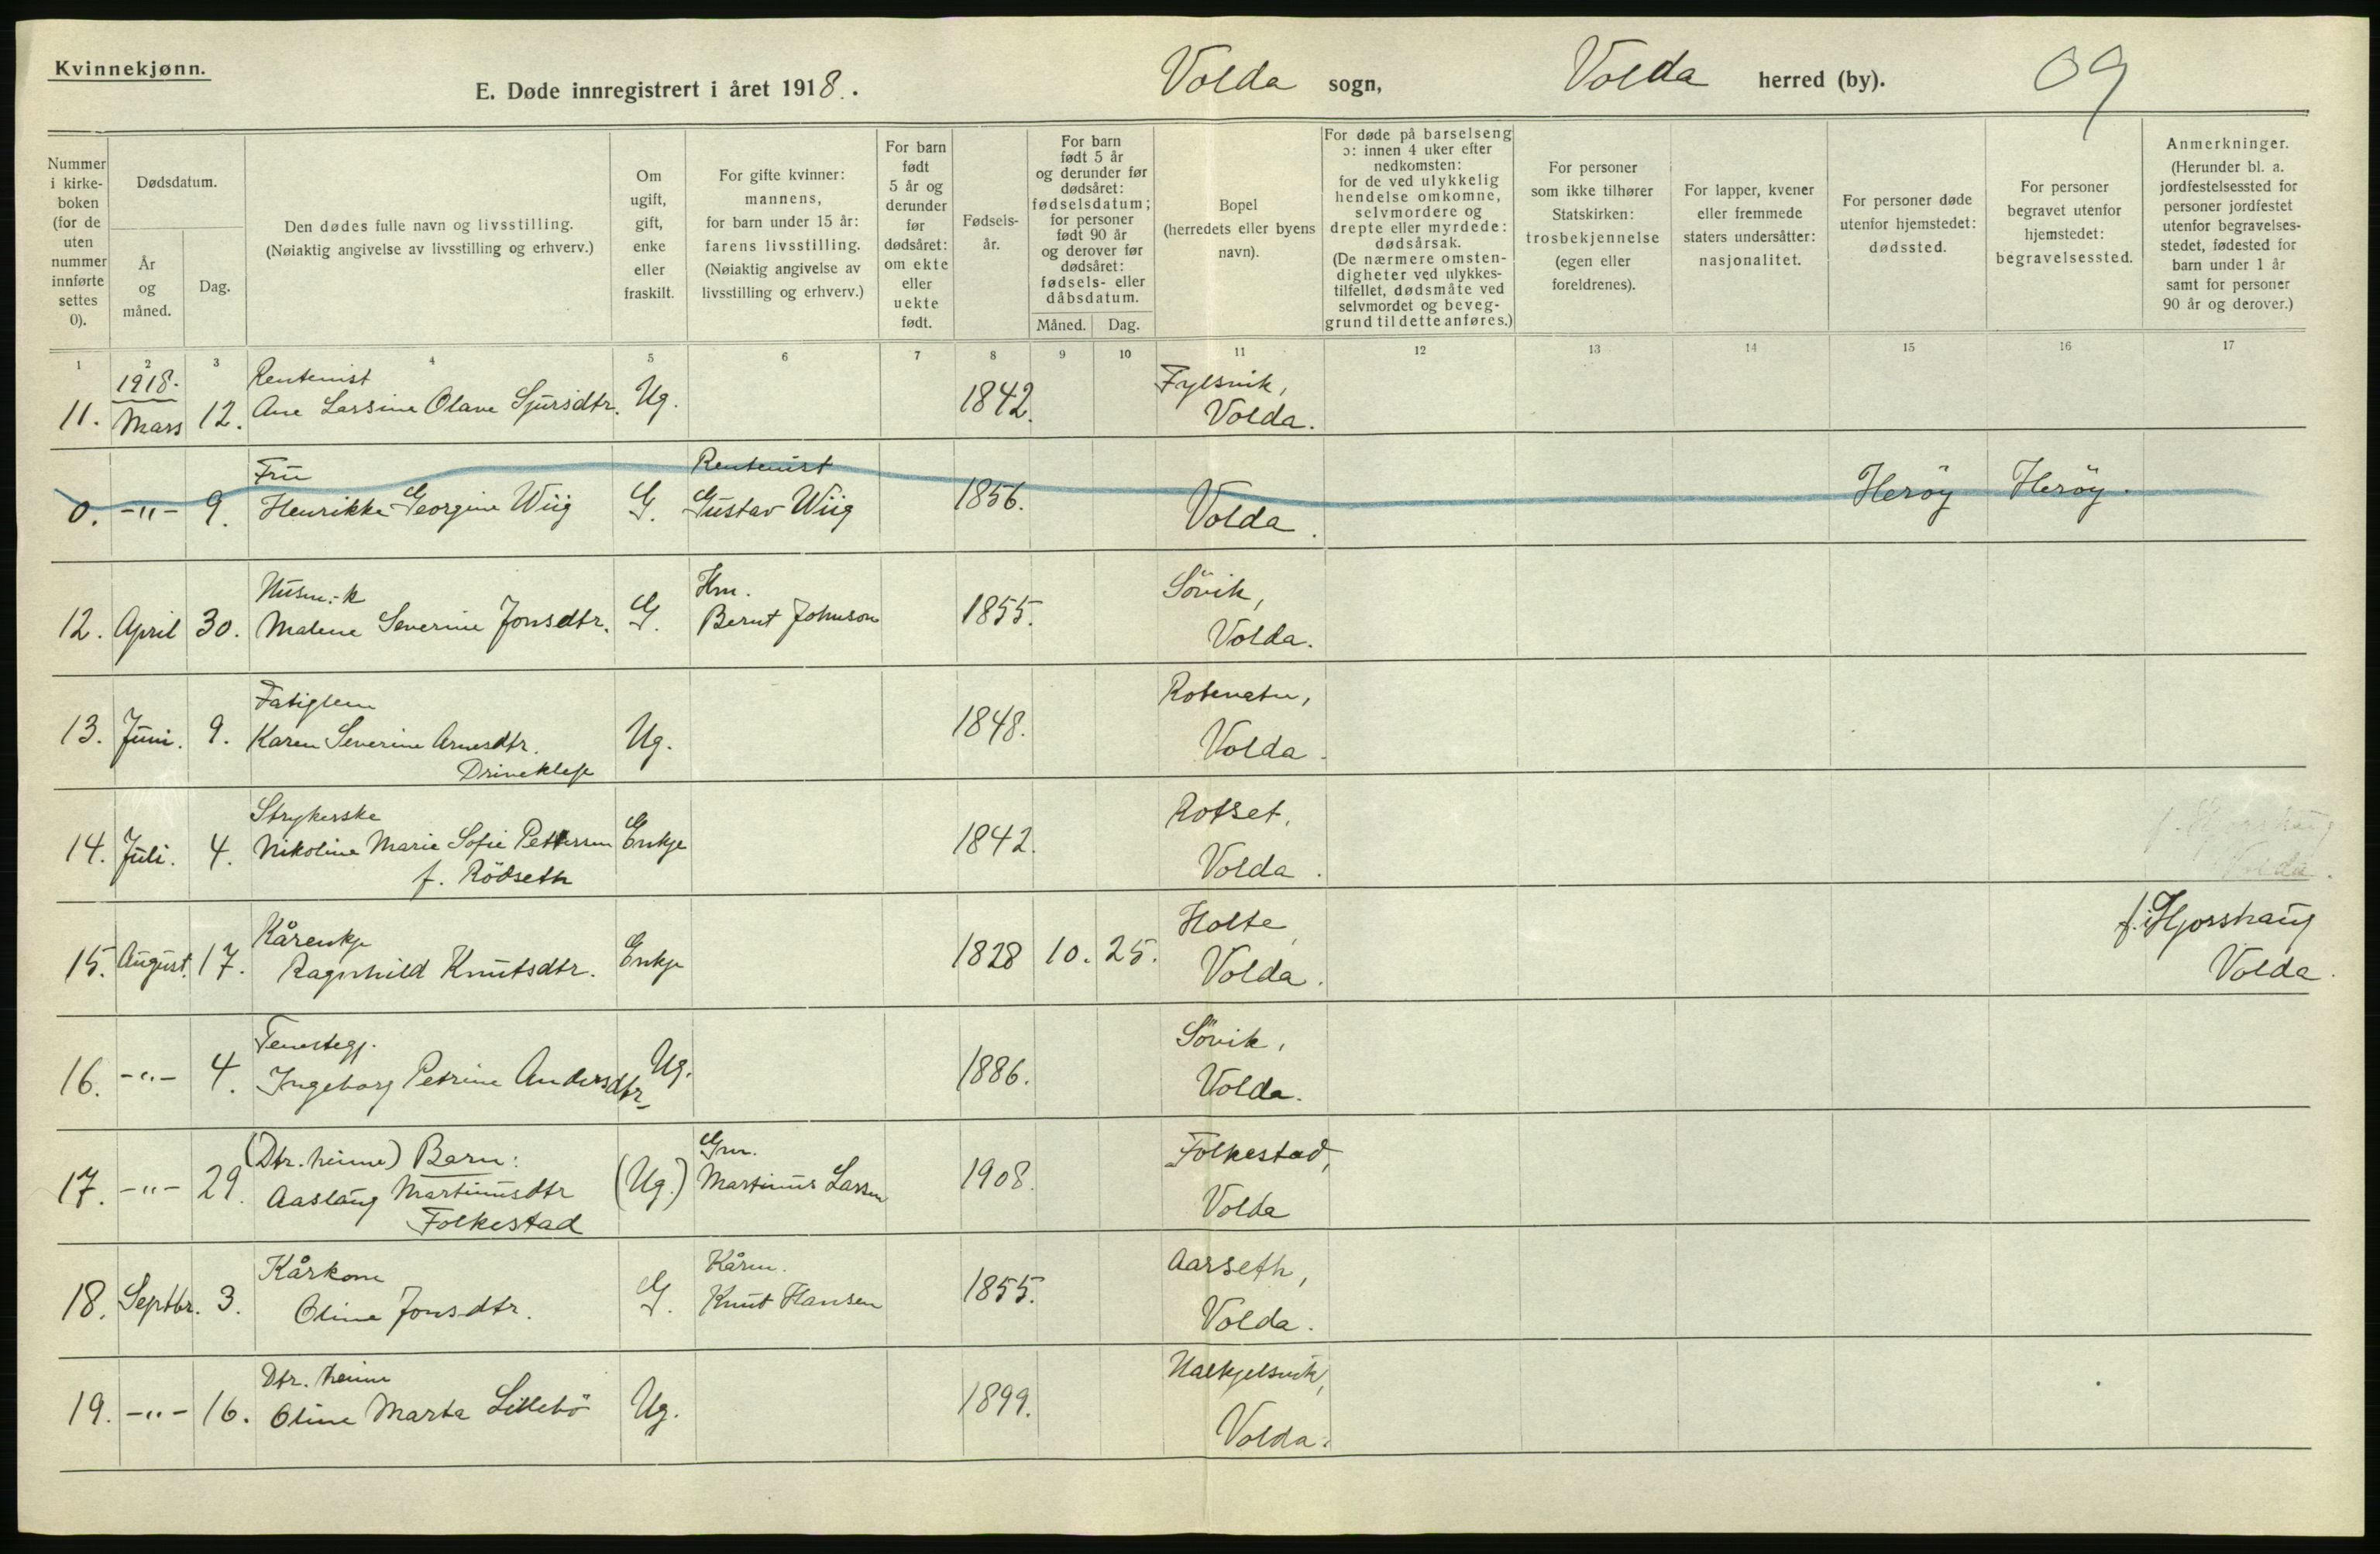 Kvinnekjønn.
E. Døde innregistrert i året 1918. Volda sogn, Volda herred (by). 09
Nummer i kirke-boken (for de uten nummer innførte settes 0).
Dødsdatum.
År og måned.
Dag.
Den dødes fulle navn og livsstilling.
(Nøiaktig angivelse av livsstilling og erhverv.)
Om ugift, gift, enke eller fraskilt.
For gifte kvinner: mannens, for barn under 15 år: farens livsstilling. (Nøiaktig angivelse av livsstilling og erhverv.)
For barn født 5 år og derunder før dødsåret: om ekte eller uekte født.
Fødsels-år.
For barn født 5 år og derunder før dødsåret: fødselsdatum; for personer født 90 år og derover før dødsåret: fødsels- eller dåbsdatum.
Måned. Dag.
Bopel (herredets eller byens navn).
For døde på barselseng ɔ: innen 4 uker efter nedkomsten: for de ved ulykkelig hendelse omkomne, selvmordere og drepte eller myrdede: dødsårsak. (De nærmere omsten-digheter ved ulykkes-tilfellet, dødsmåte ved selvmordet og beveg-grund til dette anføres.)
For personer som ikke tilhører Statskirken: trosbekjennelse (egen eller foreldrenes).
For lapper, kvener eller fremmede staters undersåtter: nasjonalitet.
For personer døde utenfor hjemstedet: dødssted.
For personer begravet utenfor hjemstedet: begravelsessted.
Anmerkninger. (Herunder bl. a. jordfestelsessted for personer jordfestet utenfor begravelses-stedet, fødested for barn under 1 år samt for personer 90 år og derover.)
1 2 3 4 5 6 7 8 9 10 11 12 13 14 15 16 17
1918. Rentenist Fylsvik,
11. Mars 12. Ane Lassine Olave Sjursdtr. Ug. 1842. Volda.
Fru Rentenist
0. -"- 9. Henrikke Georgine Wiig G. Gustav Wiig 1856. Volda. Heröy Heröy.
Husm.-k Hm. Sövik,
12. April 30. Malene Severine Jonsdtr. G. Bernt Johnson 1855. Volda.
Fatiglem Rotevatn,
13. Juni. 9. Karen Severine Arnesdtr. Ug. 1848. Volda.
Driveklepp
Strykerske Rotset,
14. Juli. 4. Nikoline Marie Sofie Pettersen Enkje 1842. Volda.
f. Rödseth
Kårenkje Holte, f. i Hjorshaug
15. August. 17. Ragnhild Knutsdtr. Enkje 1828 10. 25. Volda. Volda.
Tenestegj. Sövik,
16. -"- 4. Ingeborg Petrine Andersdtr. Ug. 1886. Volda.
(Dtr. heime) Barn: Gm. Folkestad,
17. -"- 29. Aaslaug Martinusdtr (Ug.) Martinus Larsen 1908. Volda
Folkestad
Kårkone Kårm. Aarseth,
18. Septbr. 3. Oline Jonsdtr. G. Knut Hansen 1855. Volda.
Dtr. heime Halkjelsvik,
19. -"- 16. Oline Marta Lillebö Ug. 1899. Volda.